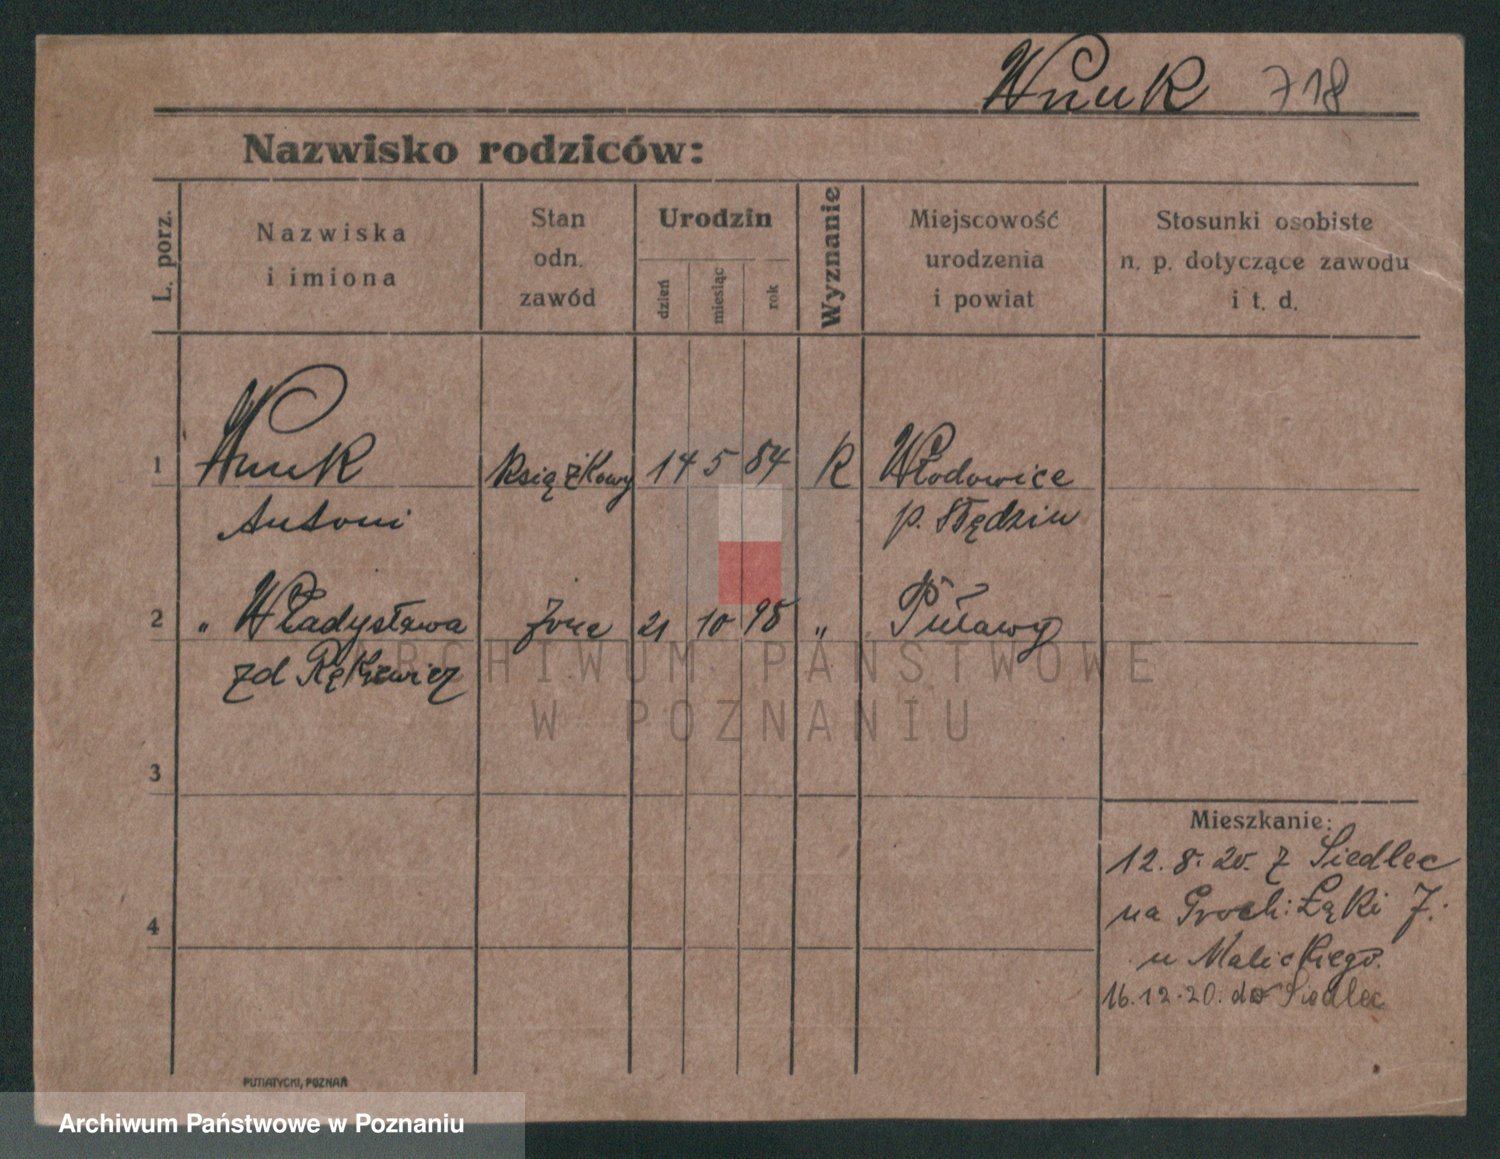 Wnuk 718
Nazwisko rodziców:
L. porz.
Nazwiska
i imiona
Stan
odn.
zawód
Urodzin
dzień
miesiąc
rok
Wyznanie
Miejscowość
urodzenia
i powiat
Stosunki osobiste
n. p. dotyczące zawodu
i t. d.
1 Wnuk książkowy 14 5 84 R Włodowice
Antoni p. Będzin
2 " Władysława żona 21 10 98 " Puławy
zd Rękiewicz
ARCHIWUM PAŃSTWOWE
W POZNANIU
3
4
Mieszkanie:
12. 8. 20. z Siedlec
na Groch: Łąki 7.
u Malickiego.
16.12.20. do Siedlec
PUTIATYCKI, POZNAŃ
Archiwum Państwowe w Poznaniu